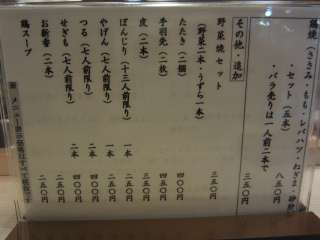 鶏焼（ささみ・もも・レバハツ・ねぎま・砂肝
・セット（五本）　八五〇円
・バラ売りは一人前二本で　三五〇円
その他・追加
野菜焼セット
（野菜二本・うずら一本）　三五〇円
たたき（二個）　四〇〇円
手羽先（二枚）　四五〇円
皮（二本）　三五〇円
ぼんじり（十三人前限り）　一本　二五〇円
やげん（七人前限り）　一本　二五〇円
つる（七人前限り）　二本　四〇〇円
せぎも（七人前限り）　二本　四〇〇円
お新香（二本）　二五〇円
鶏スープ　二五〇円
※メニュー表示価格はすべて税